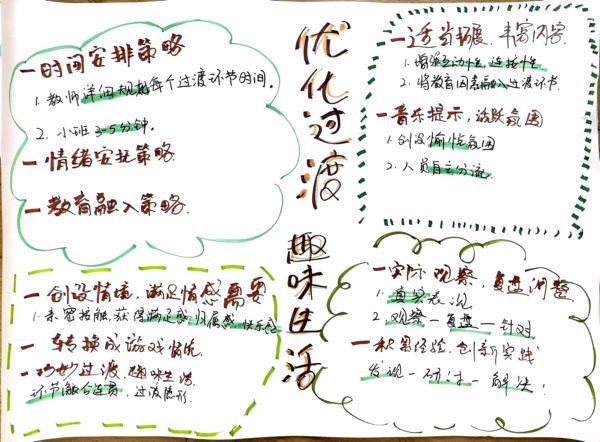 优化过渡 趣味生活
一时间安排策略
1.教师详细规划每个过渡环节时间。
2.小班3-5分钟。
一情绪安抚策略
一教育融入策略
一适当拓展、丰富内容
1.增强互动性、连接性
2.将教育因素融入过渡环节.
一音乐提示,活跃氛围
1.创设愉悦氛围
2.人员自主分流.
一创设情境,满足情感需要
1.亲密接触、获得满足感、归属感、快乐感
一转换成游戏情境
一巧妙过渡、趣味生活
环节融合连贯,过渡隐形.
一实际观察,复盘调整
1.真实表现
2.观察一复盘一针对
一积累经验、创新实践
发现一研讨一解决!